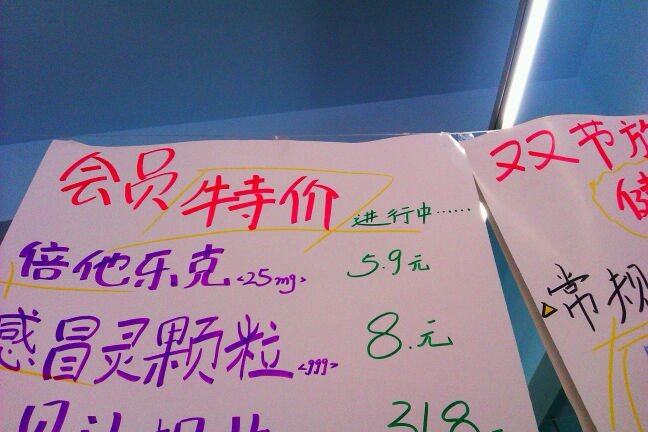 会员特价进行中……
倍他乐克<25mg> 5.9元
感冒灵颗粒<999> 8.元
318
双节放
健
常规